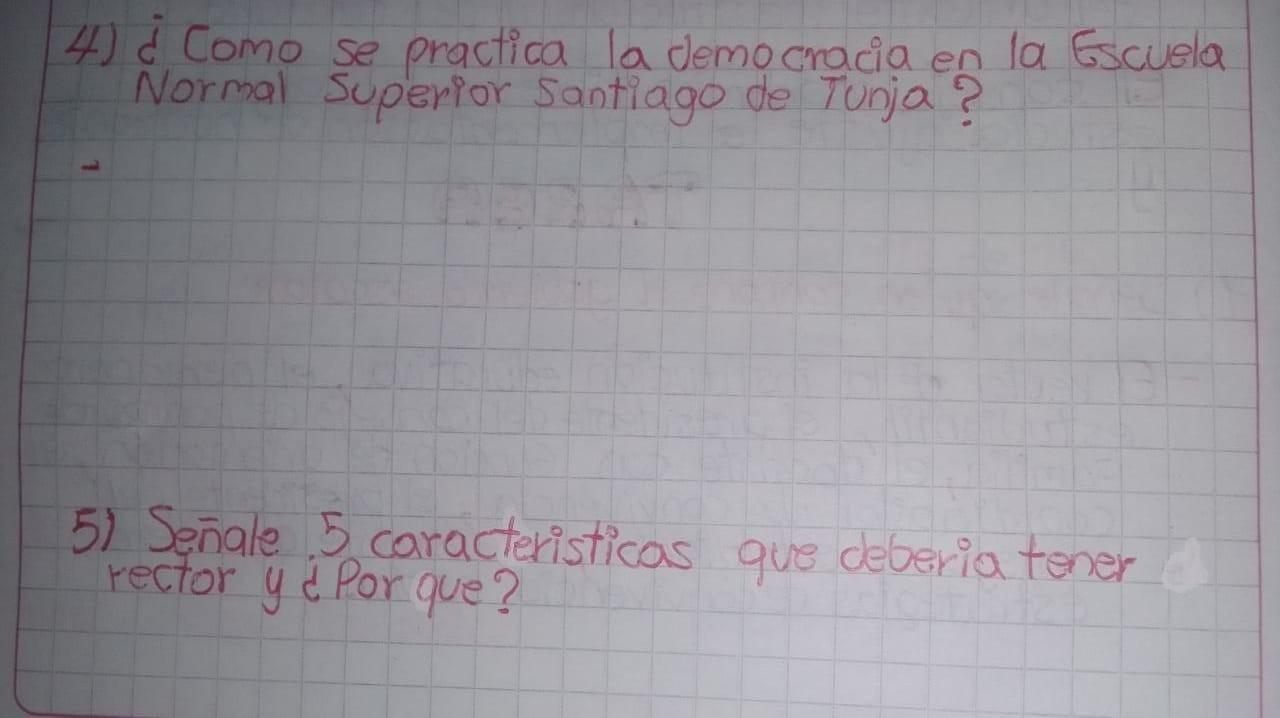 4) ¿Como se practica la democracia en la Escuela
Normal Superior Santiago de Tunja?
-
5) Señale 5 caracteristicas que deberia tener
rector y ¿Por que?